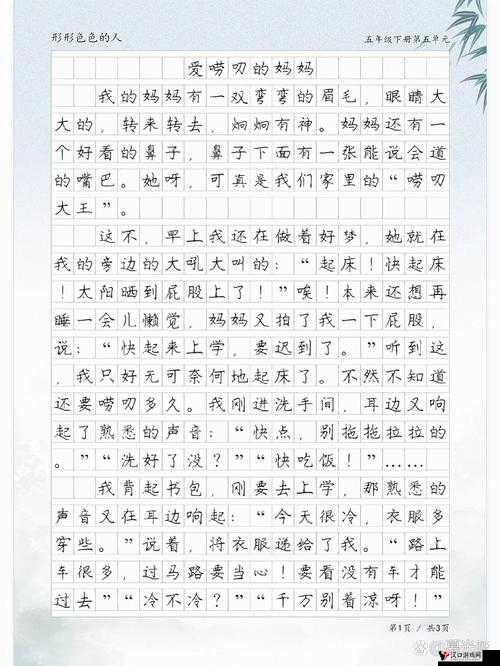 形形色色的人
五年级下册第五单元
爱唠叨的妈妈
我的妈妈有一双弯弯的眉毛，眼睛大
大的，转来转去，炯炯有神。妈妈还有一
个好看的鼻子，鼻子下面有一张能说会道
的嘴巴。她呀，可真是我们家里的“唠叨
大王”。
这不，早上我还在做着好梦，她就在
我的旁边的大吼大叫的：“起床！快起床
！太阳晒到屁股上了！”唉！本来还想再
睡一会儿懒觉，妈妈又拍了我一下屁股，
说：“快起来上学，要迟到了。”听到这
，我只好无可奈何地起床了。不然不知道
还要唠叨多久。我刚进洗手间，耳边又响
起了熟悉的声音：“快点，别拖拖拉拉的
。”“洗好了没？”“快吃饭！”……
我背起书包，刚要去上学，那熟悉的
声音又在耳边响起：“今天很冷，衣服多
穿些。”说着，将衣服递给了我。“路上
车很多，过马路要当心！要看没有车才能
过去”“冷不冷？”“千万别着凉呀！”
第1页 / 共3页
汉口游戏网